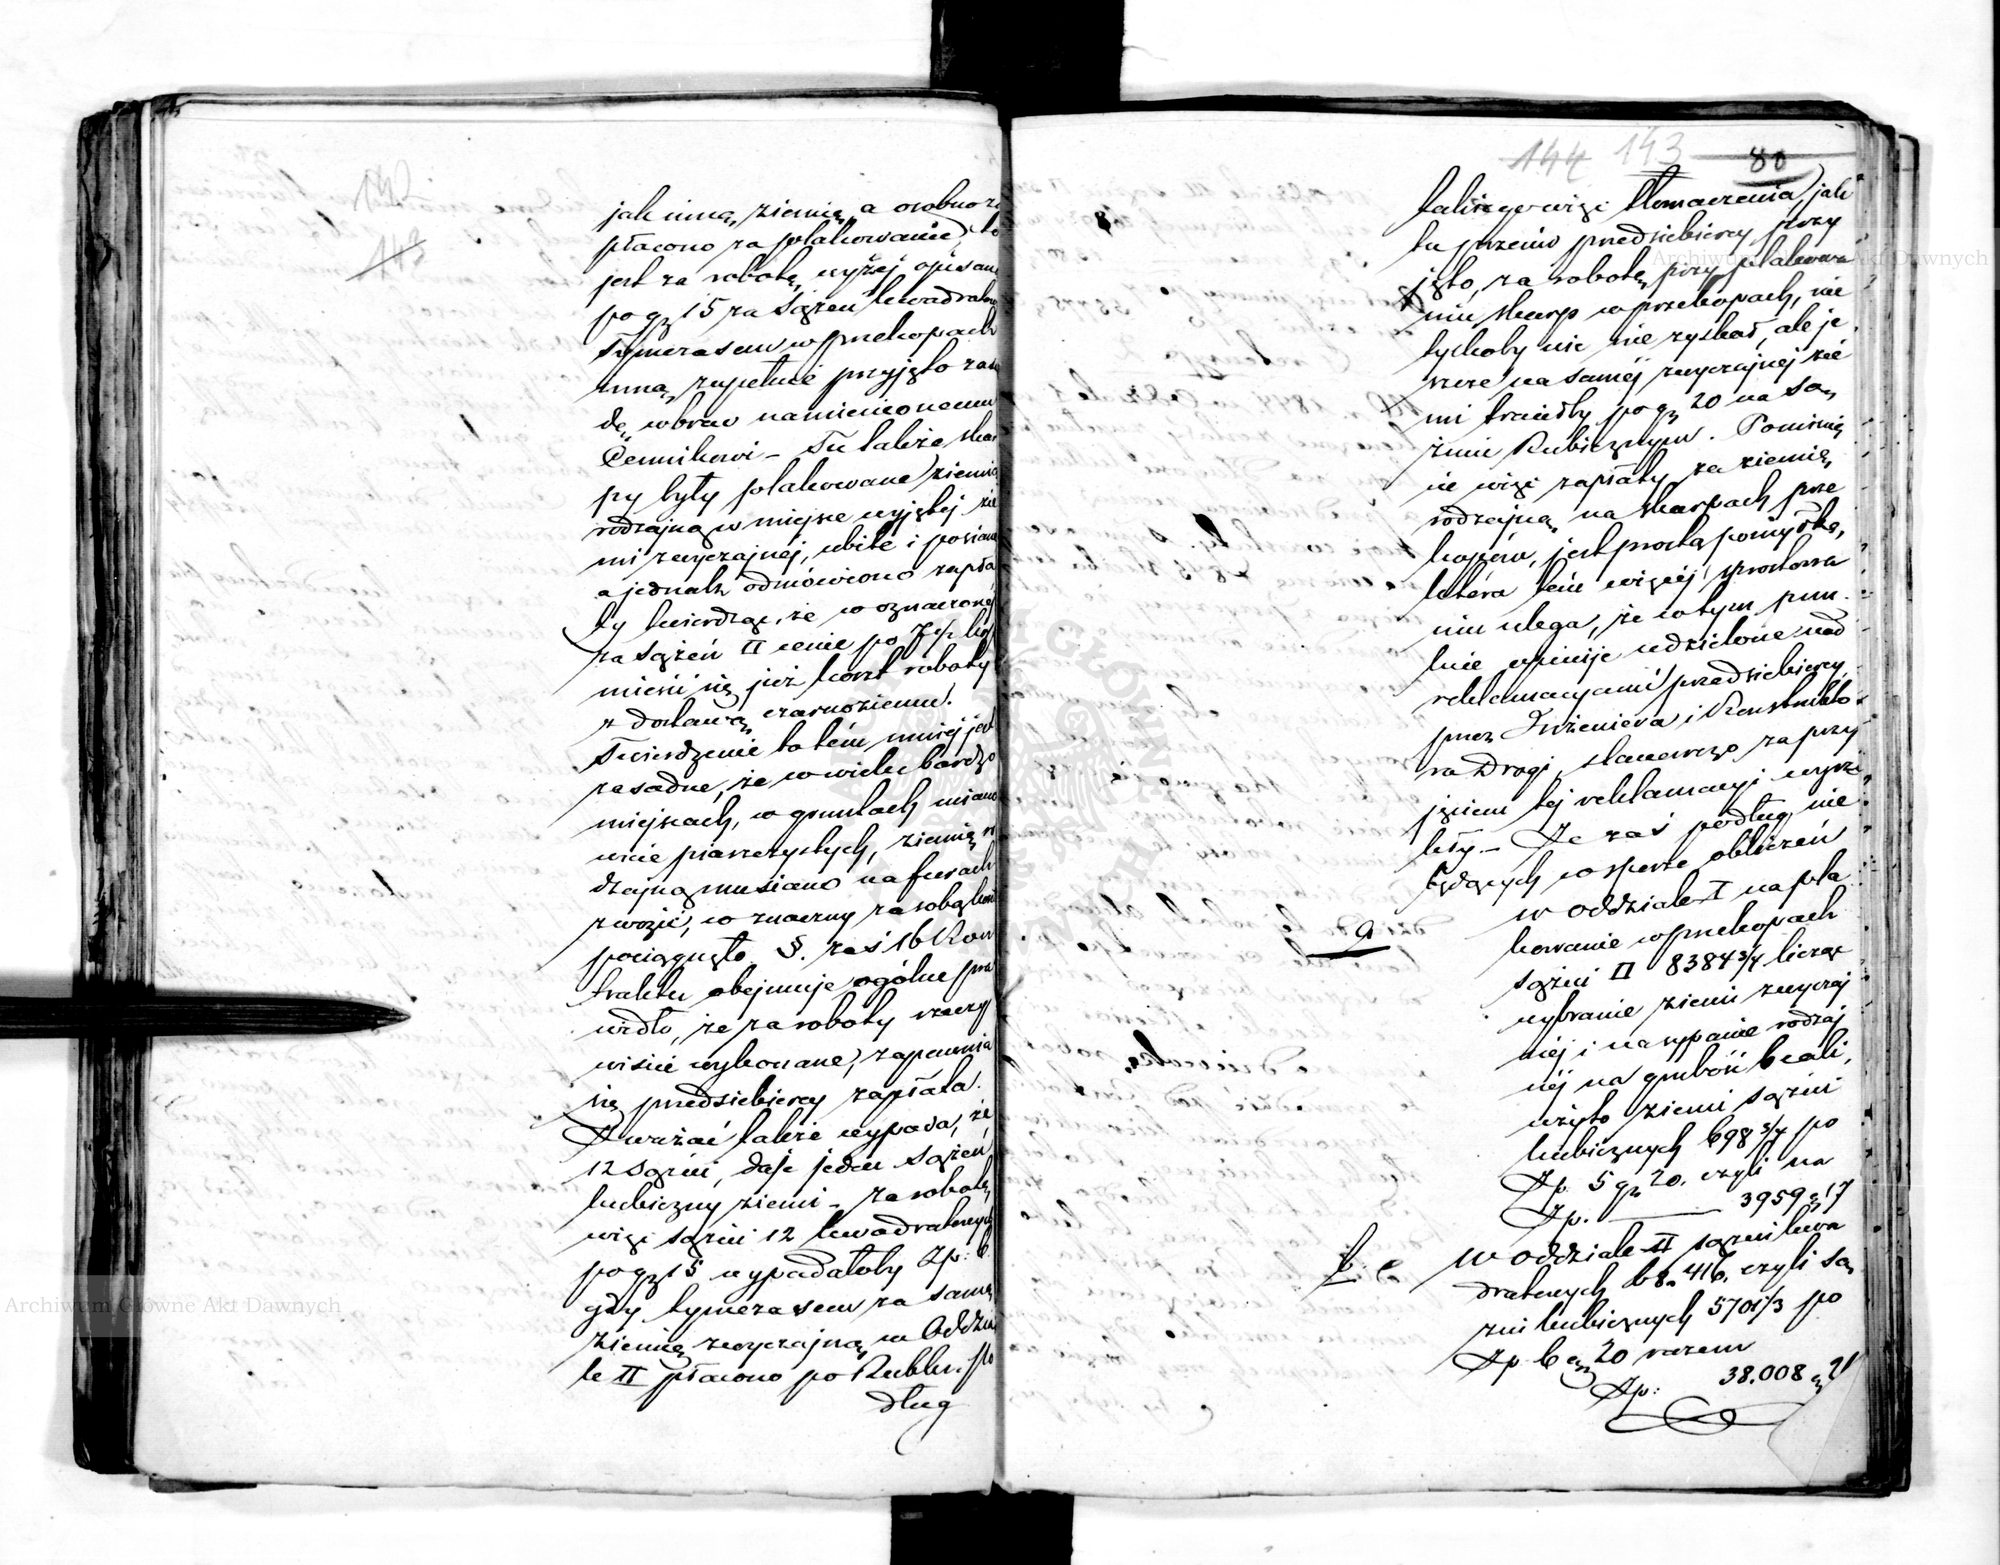 142
143
jak inną, ziemię, a osobno za
płacono za plakowanie, to
jest za robotę wyżej opisaną
po gr 15 za Sążeń kwadratowy
Tymczasem w przekopach
inną, zupełnie przyjęto zasa
dę, wbrew namienionemu
Cennikowi – Tu także skar
py były plakowane ziemią
rodzajną w miejsce wyjętej zie
mi zwyczajnej, ubite i posiane
a jednak odmówiono zapła
ty twierdząc, że w oznaczonej
za sążeń II cenie po Złp
mieści się już koszt roboty
z dostawą czarnoziemu.
Twierdzenie to tém mniej jest
zasadne, że w wielu bardzo
miejscach, w gruntach miano
wicie piaszczystych, ziemię ro
dzajną musiano na furach
zwozić, co znaczny za sobą koszt
pociągnęło. §. zaś 16 Kon
traktu obejmuje ogólne pra
widło, że za roboty rzeczy
wiście wykonane, zapewnia
się przedsiębiercy zapłata.
Zważać także wypada, że
12 Sążni, daje jeden sążeń
kubiczny ziemi – za robotę
więc sążni 12 kwadratowych
po gr 15 wypadałoby Złp: 6.
gdy tymczasem za samą
ziemię zwyczajną w Oddzia
le II płacono po Rubln. po
dług
144 143 80
takiego więc tłomaczenia, jak
tu przeciw przedsiębiercy przy
jęto, za robotę przy plakowa
niu skarp w przekopach, nie
tylkoby nic nie zyskał, ale je
szcze na samej zwyczajnej zie
mi traciłby po gr 20 na są
żniu Kubicznym. Pominię
cie więc zapłaty za ziemię
rodzajną na skarpach prze
kopów, jest prostą pomyłką,
która tém więcej sprostowa
niu ulega, że w tym pun
kcie opinije udzielone nad
reklamacyami przedsiębiercy
przez Inżeniera i Konstrukto
ra Drogi, stanowczo za przy
jęciem tej reklamacyi wyrze
kły – Że zaś podług nie
będących w sporze obliczeń
9
w oddziale I na pla
kowanie w przekopach
sążni II 8384 3/4 licząc
wybranie ziemi zwyczaj
néj i nasypanie rodzaj
néj na grubość 6 cali,
użyto ziemi sążni
kubicznych 698 3/4 po
Złp. 5 gr 20. czyli na
Złp. — 3959 gr 17
w oddziale II sążni kwa
dratowych 68.416. czyli są
żni kubicznych 5701 1/3 po
Złp 6 gr 20 razem
Złp: 38.008 gr 21
Archiwum Główne Akt Dawnych
Archiwum Główne Akt Dawnych